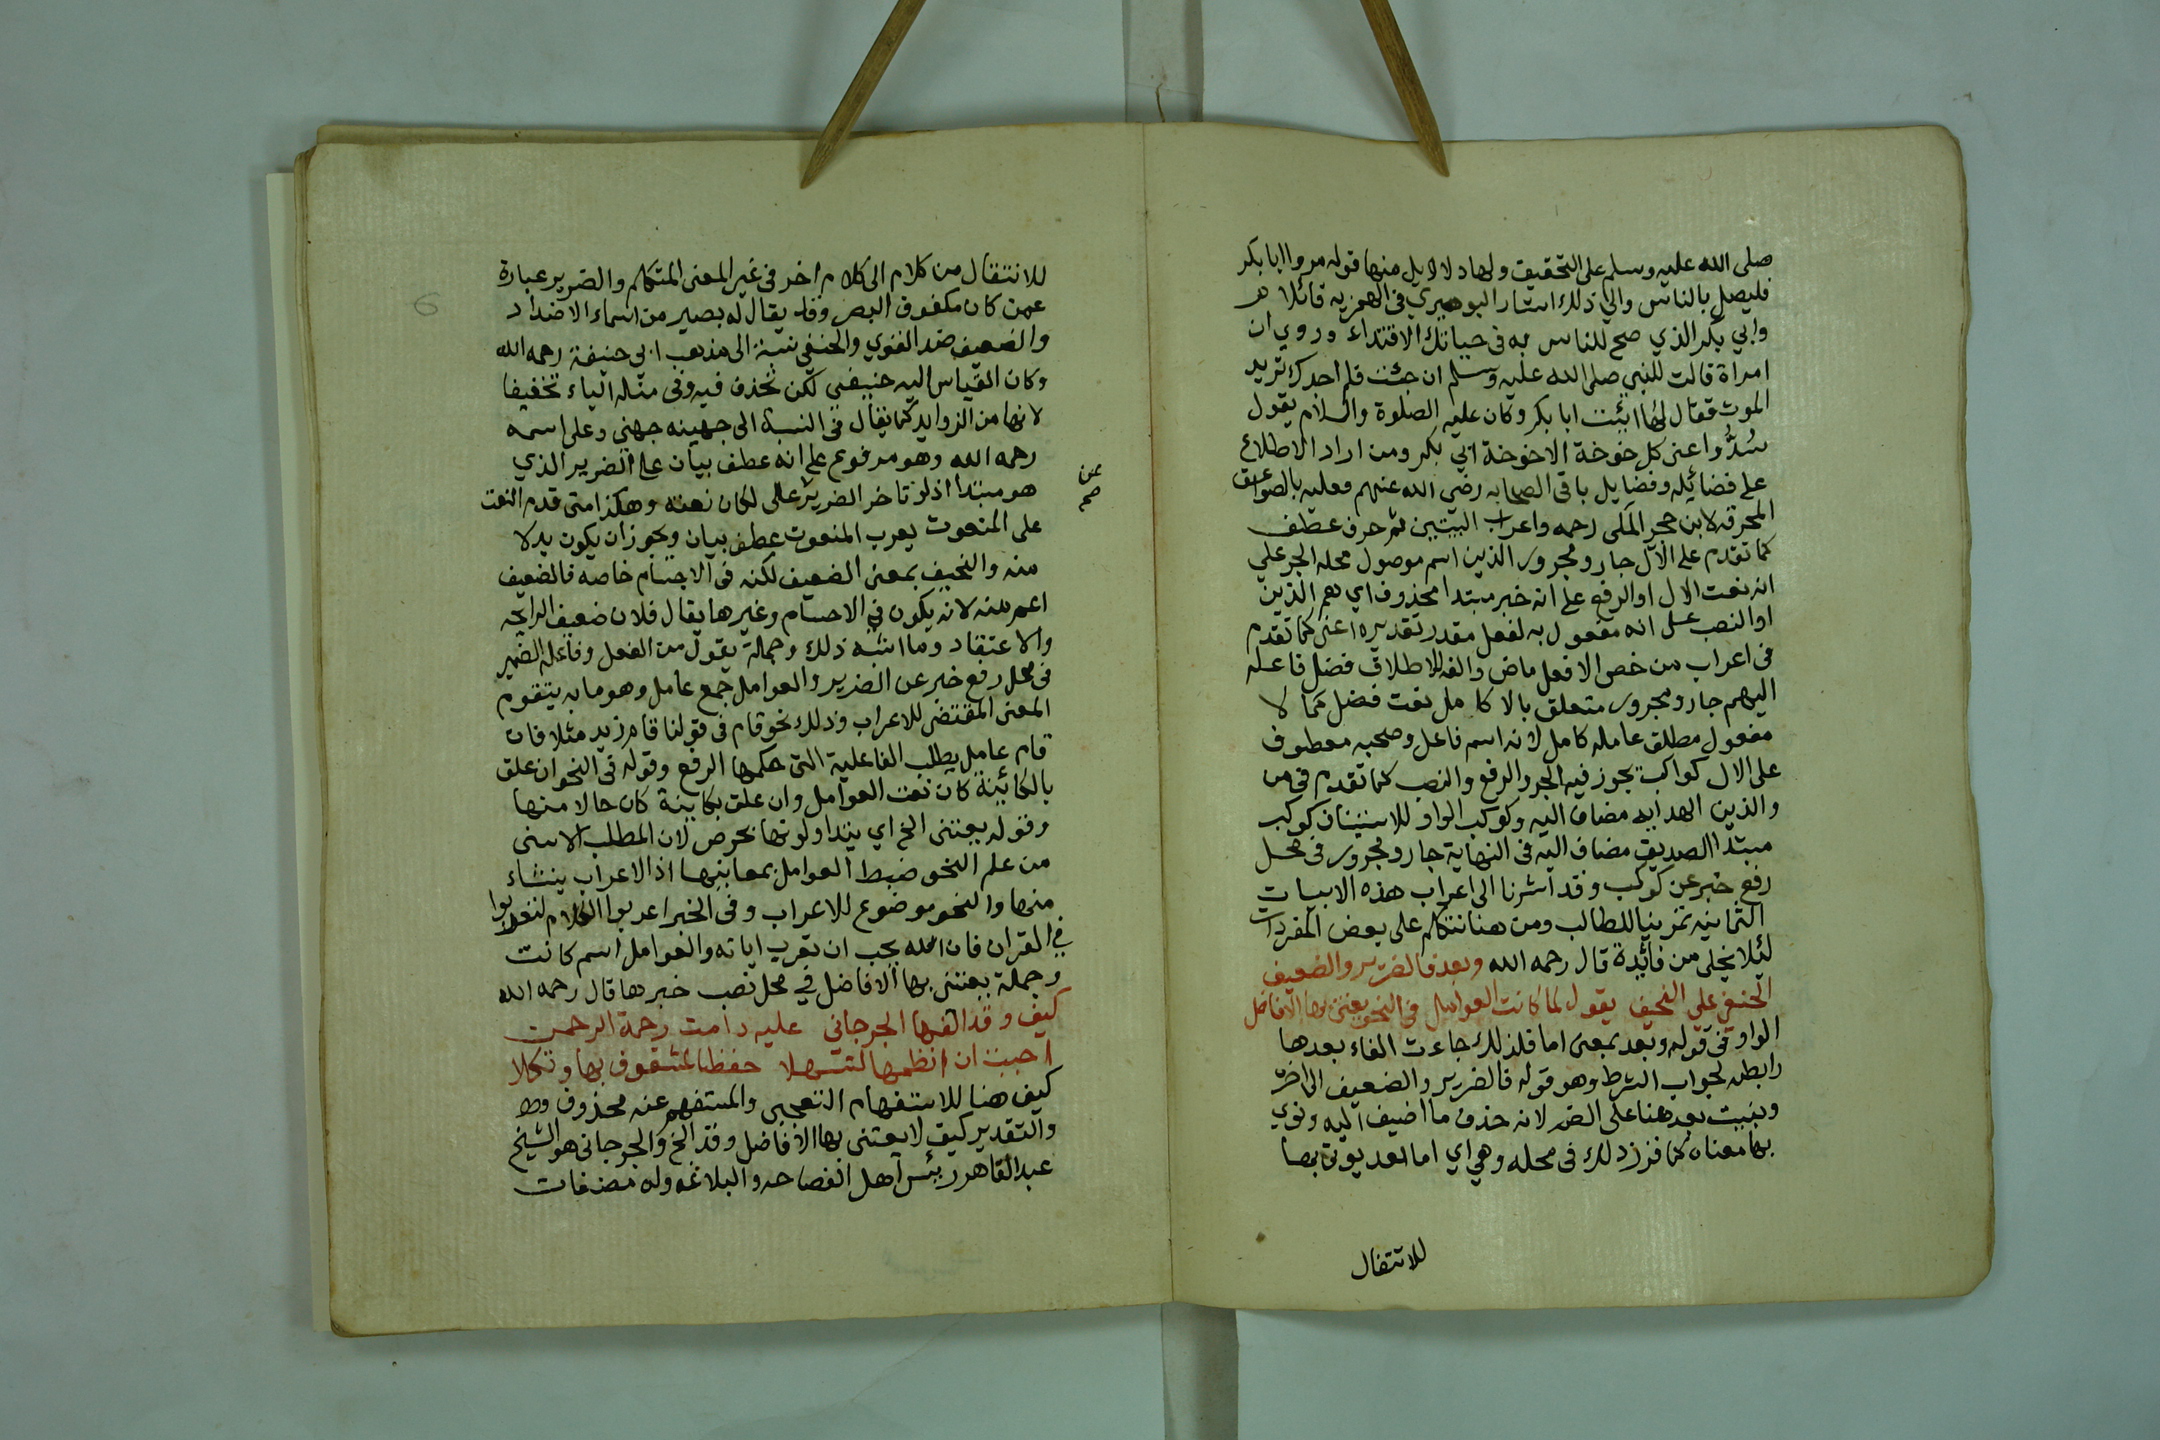 صلى الله عليه وسلم على التحقيق ولها دلايل منها قوله مروا ابا بكر
فليصل بالناس والي ذلك اشار البوصيري في الهمزيه قائلا
وابي بكر الذي صح للناس به في حياتك الاقتداء وروي ان
امراة قالت للنبي صلى الله عليه وسلم ان جئت فلم اجدك تريد
الموت فقال لها ائت ابا بكر وكان عليه الصلوة والسلام يقول
سُدُّوا عني كل خوخة الا خوخة ابي بكر ومن اراد الاطلاع
على فضائله وفضايل باقي الصحابه رضي الله عنهم فعليه بالصواعق
المحرقه لابن حجر المكى رحمه واعراب البيتين ثم حرف عطف
كما تقدم على الآل جار ومجرور الذين اسم موصول محله الجر علي
انه نعت الال او الرفع على انه خبر مبتدا محذوف اي هم الذين
او النصب على انه مفعول به لفعل مقدر تقديره اعني كما تقدم
في اعراب من خص الا فعل ماض والفه للاطلاق فضل فاعله
اليهم جار ومجرور متعلق بالا كامل نعت فضل كما لا
مفعول مطلق عامله كامل لانه اسم فاعل وصحبه معطوف
على الال كواكب يجوز فيه الجر والرفع والنصب كما تقدم في من
والذين الهدايه مضاف اليه وكوكب الواو للاستيناف كوكب
مبتدا الصديق مضاف اليه في النهاية جار ومجرور في محل
رفع خبر عن كوكب وقد اشرنا الى اعراب هذه الابيات
الثمانيه تمرينا للطالب ومن هنا نتكلم على بعض المفردات
لئلا يخلى من فائدة قال رحمه الله وبعد فالضرير والضعيف
الحنفي علي النحيف يقول لما كانت العوامل في النحو يعتني بها الافاضل
الواو في قوله وبعد بمعنى اما فلذلك جاءت الفاء بعدها
رابطه لجواب الشرط وهو قوله فالضرير والضعيف الى اخره
وبنيت بعد هنا على الضم لانه حذف ما اضيف اليه ونوي
بها معناه كما قرر ذلك في محله وهي اي اما بعد يوتى بها
للانتقال
للانتقال من كلام الى كلام اخر في غير المعنى المتكلم والضرير عبارة
عمن كان مكفوف البصر وقد يقال له بصير من اسماء الاضداد
والضعيف ضد القوي والحنفي نسبة الى مذهب ابي حنيفة رحمه الله
وكان القياس اليه حنيفي لكن تحذف فيه وفي مثله الياء تخفيفا
لانها من الزوايد كما يقال في النسبة الى جهينه جهني وعلى اسمه
رحمه الله وهو مرفوع على انه عطف بيان على الضرير الذي
هو مبتدا اذ لو تاخر الضرير على لكان نعته وهكذا متى قدم النعت
عن
صح
على المنعوت يعرب المنعوت عطف بيان ويجوز ان يكون بدلا
منه والنحيف بمعنى الضعيف لكنه في الاجسام خاصه فالضعيف
اعم منه لانه يكون في الاجسام وغيرها يقال فلان ضعيف الرايحه
والاعتقاد وما اشبه ذلك وجملة يقول من الفعل وفاعله الضمير
في محل رفع خبر عن الضرير والعوامل جمع عامل وهو ما به يتقوم
المعنى المقتضى للاعراب وذلك نحو قام في قولنا قام زيد مثلا فان
قام عامل يطلب الفاعلية التي حكمها الرفع وقوله في النحو ان علق
بالكائينة كان نعت العوامل وان علق بكاينة كان حالا منها
وقوله يعتنى الخ اي يتداولونها بحرص لان المطلب الاسنى
من علم النحو ضبط العوامل بمعانيها اذ الاعراب ينشاء
منها والنحو موضوع للاعراب وفي الخبر اعربوا الكلام لتعربوا
في القران فان الله يحب ان تعرب اياته والعوامل اسم كانت
وجملة يعتنى بها الافاضل في محل نصب خبرها قال رحمه الله
كيف وقد الفها الجرجاني عليه دامت رحمة الرحمن
احببت ان انظمها لتسهلا حفظا لمشغوف بها وتكلا
كيف هنا للاستفهام التعجبي والمستفهم عنه محذوف
والتقدير كيف لا يعتنى بها الافاضل وقد الخ والجرجاني هو الشيخ
عبد القاهر رئيس اهل الفصاحه والبلاغه وله مصنفات